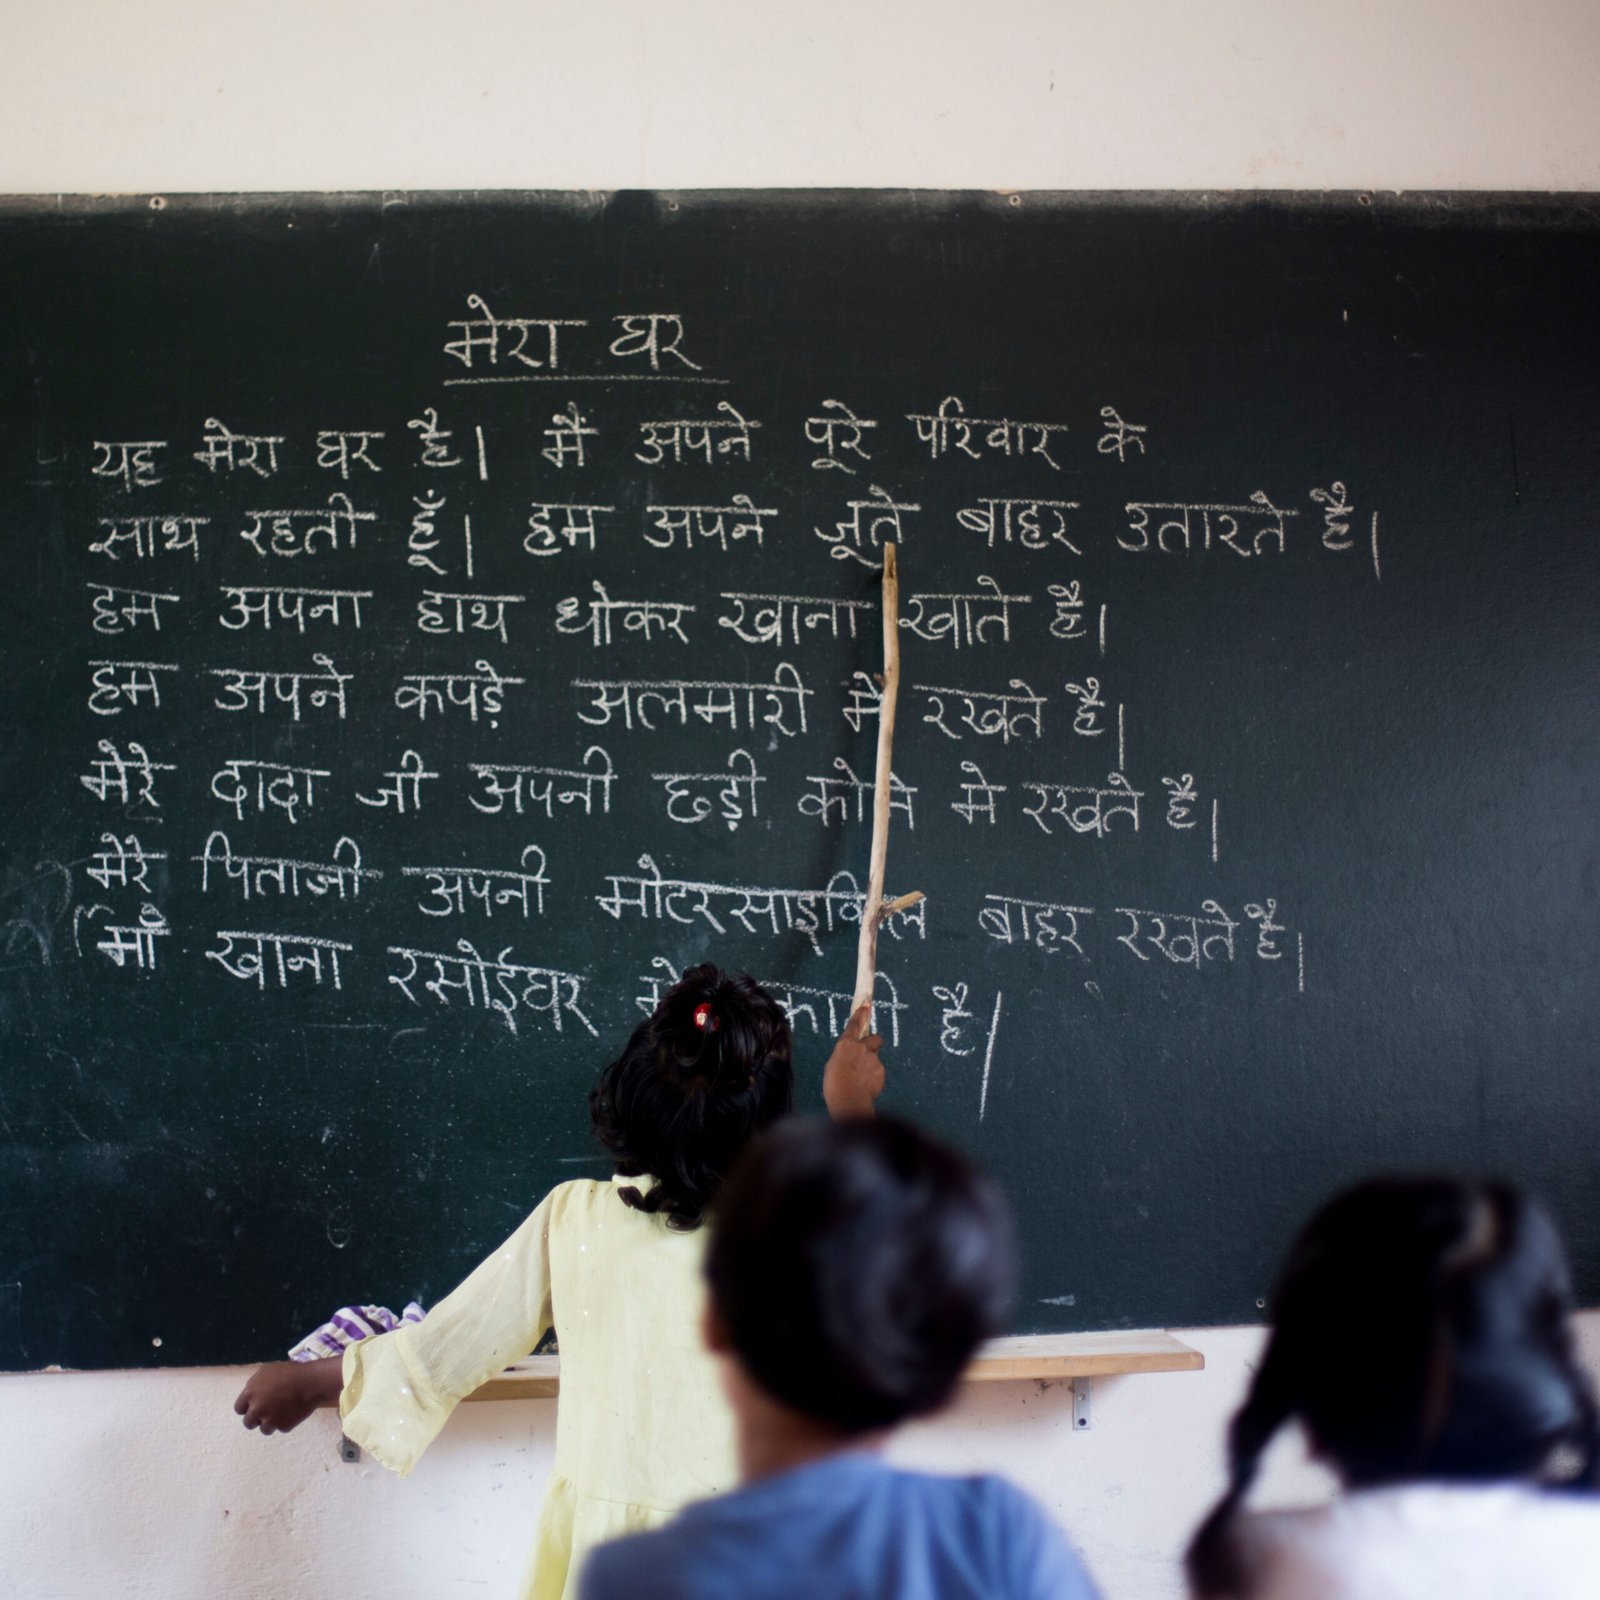 मेरा घर
यह मेरा घर है। मैं अपने पूरे परिवार के
साथ रहती हूँ। हम अपने जूते बाहर उतारते है।
हम अपना हाथ धोकर खाना खाते है।
हम अपने कपड़े अलमारी मे रखते है।
मेरे दादा जी अपनी छड़ी कोने मे रखते है।
मेरे पिताजी अपनी मोटरसाइकिल बाहर रखते है।
माँ खाना रसोईघर है।